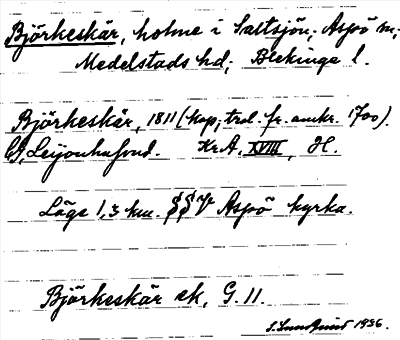 Björkeskär, holme i Saltsjön; Aspö sn;
Medelstads hd; Blekinge l.
Björkeskär, 1811 (kop; trol. fr. omkr. 1700).
G, Leijonhufvud. Kr.A, XVIII, H.
Läge 1,3 km. SSV Aspö kyrka.
Björkeskär ek, G. 11.
S. Lundquist 1936.